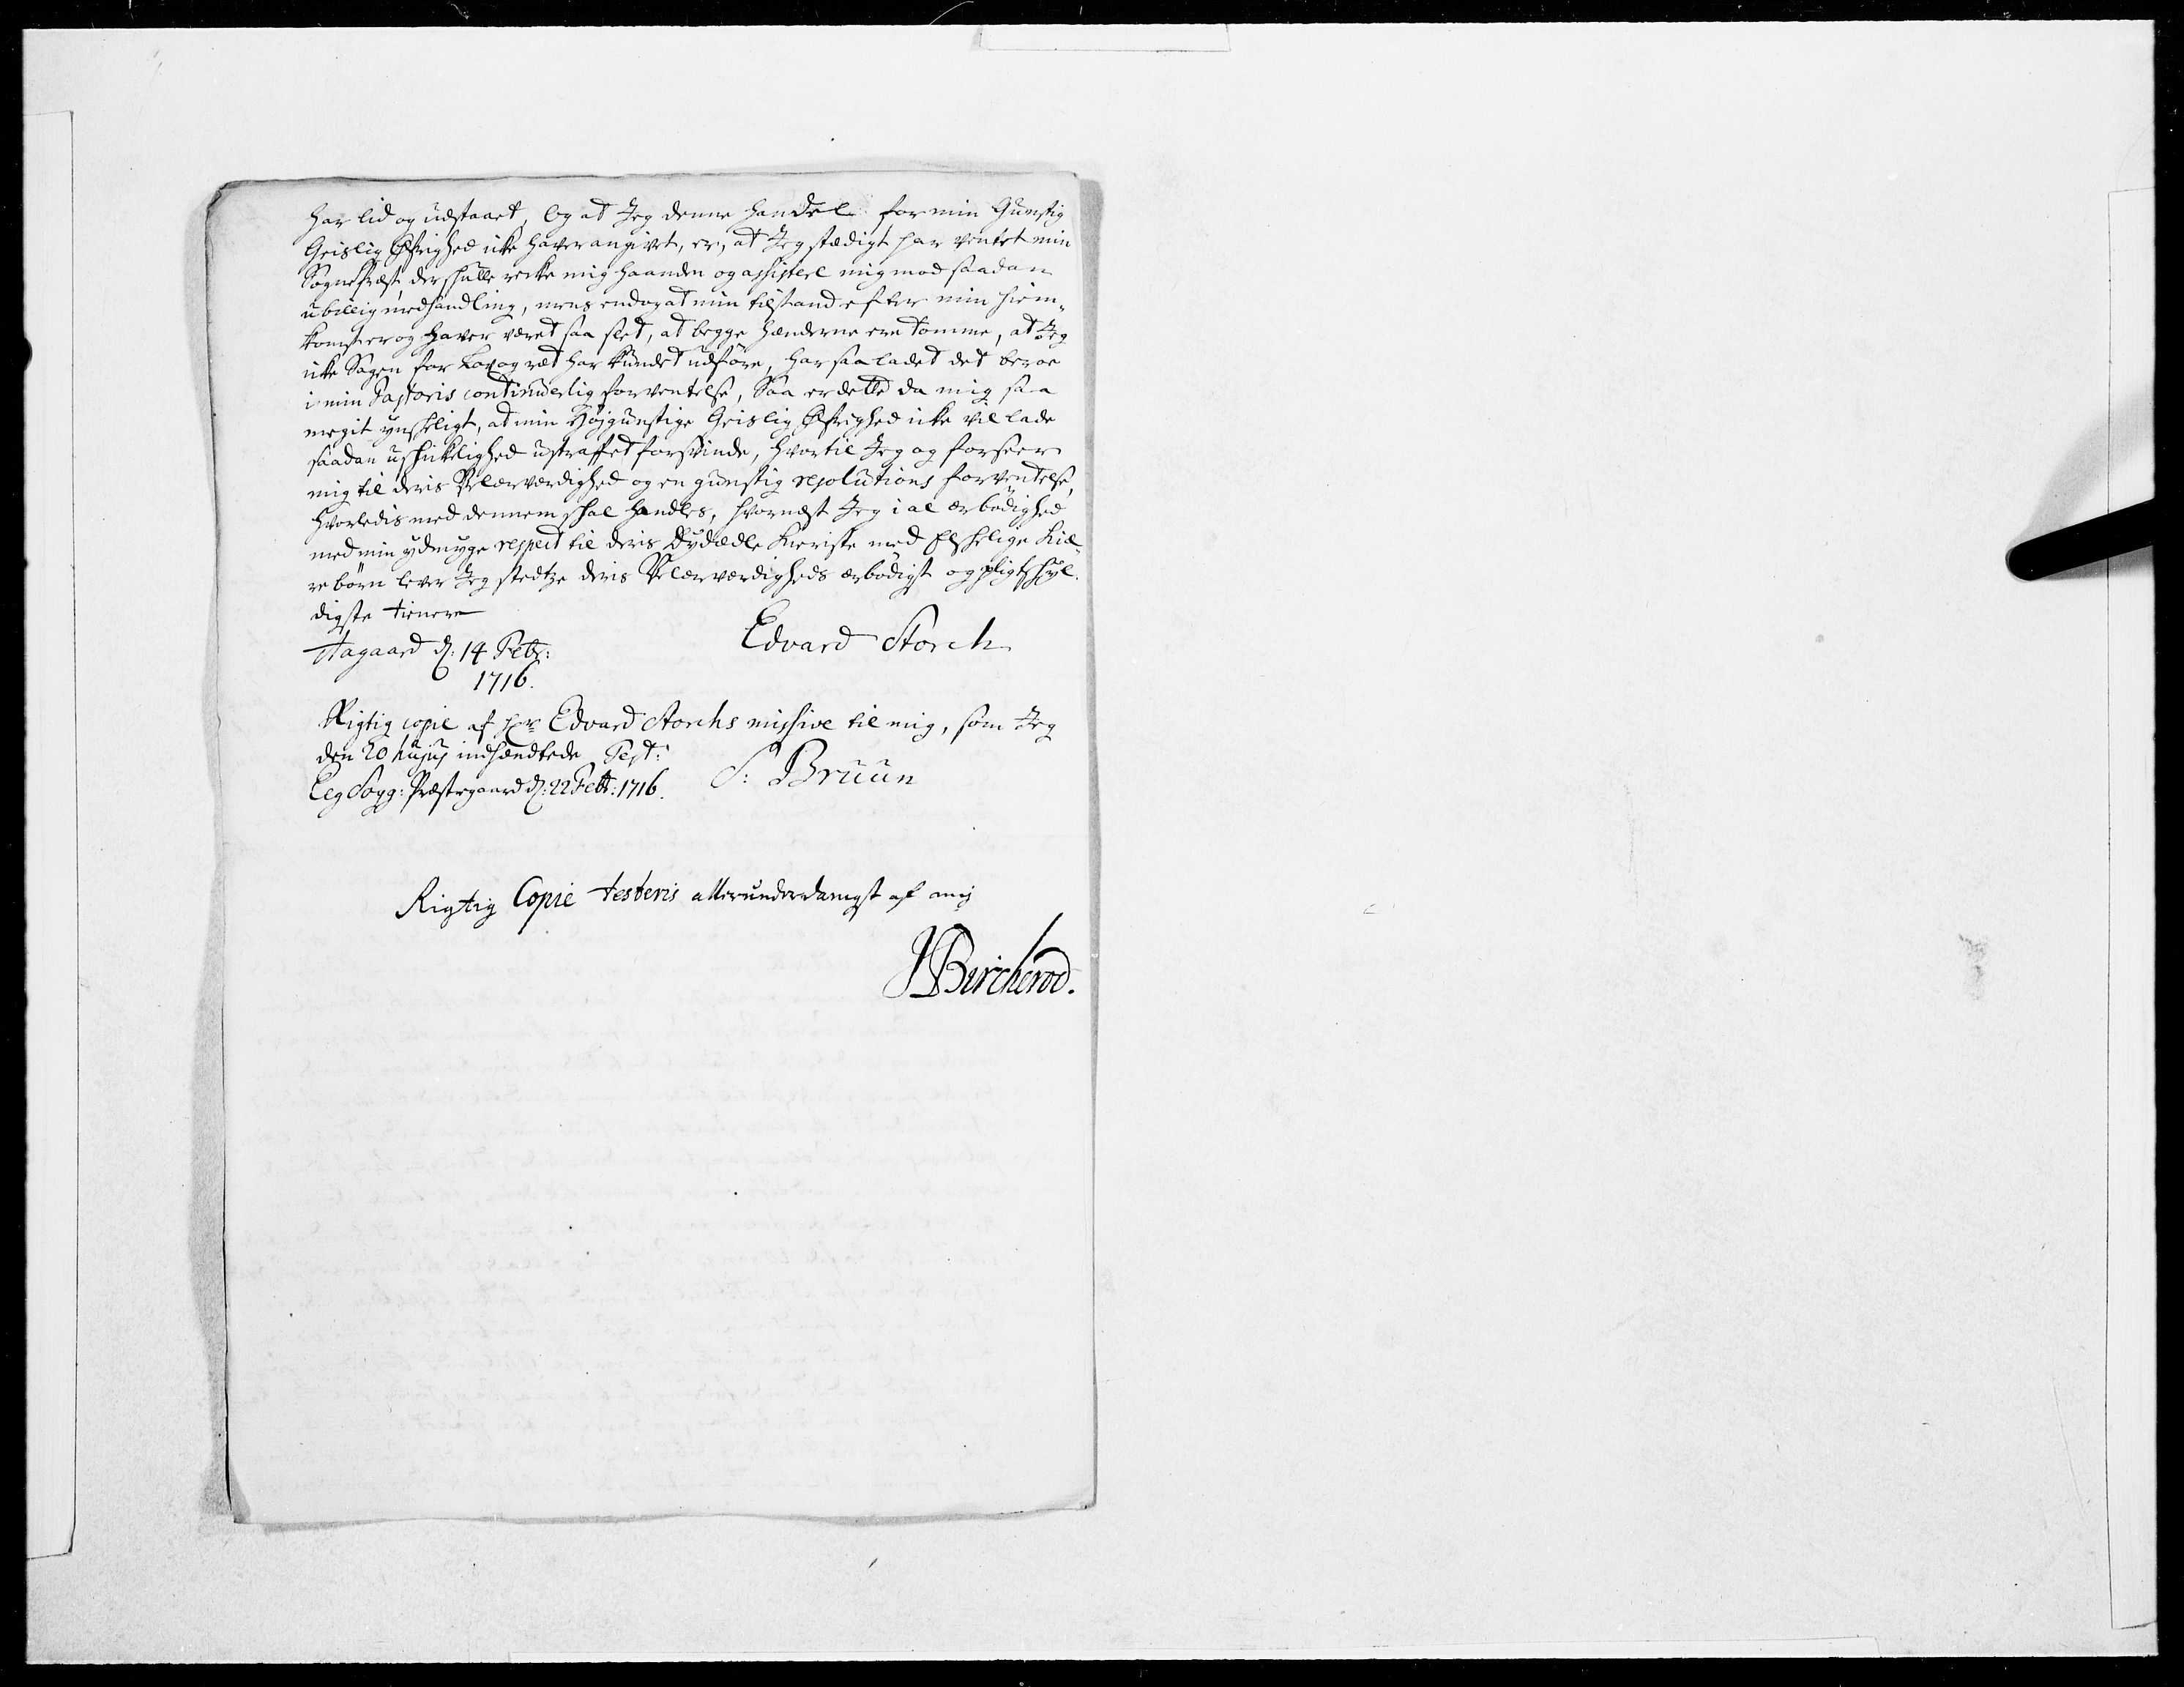 har lid og udstaaet, og at Jeg denne handel for min Gunstig
Geislig Øfrighed icke haver angivet, er, at Jeg stædigt har ventet min
Sognepræst, der skulle recke mig haanden og assistere mig mod saadan
ubillig medhandling, mens endog at min tilstand efter min hiem-
komst er og haver været saa slet, at begge hænderne ere tomme, at Jeg
icke Sagen for Lov og ræt har kundet udføre, har saa ladet det beroe
i min Pastoris continuerlig forventelse, Saa er dette da mig saa
megit ynskligt, at min Højgunstige Geislig Øfrighed icke vil lade
saadan uskickelighed ustraffet forsvinde, hvortil Jeg og forseer
mig til deris Velærværdighed og en gunstig resolutions forventelse,
hvorledis med dennem skal handles, hvornest Jeg i al ærbødighed
med min ydmyge respect til deris Dydædle Kieriste med Elskelige Kiæ-
re børn lever Jeg stedtze deris Velærværdigheds ærbødigst og pligtskyl-
digste tienere
Aagaard d: 14 Febr: Edvard Storch
1716.
Rigtig copie af Hr Edvard Storchs missive til mig, som Jeg
den 20 hujus indhændtede Test:
Eeg Sogg: Præstegaard d: 22 Febr: 1716. S: Bruun
Rigtig Copie testeris allerunderdanigst af mig
JBircherod.